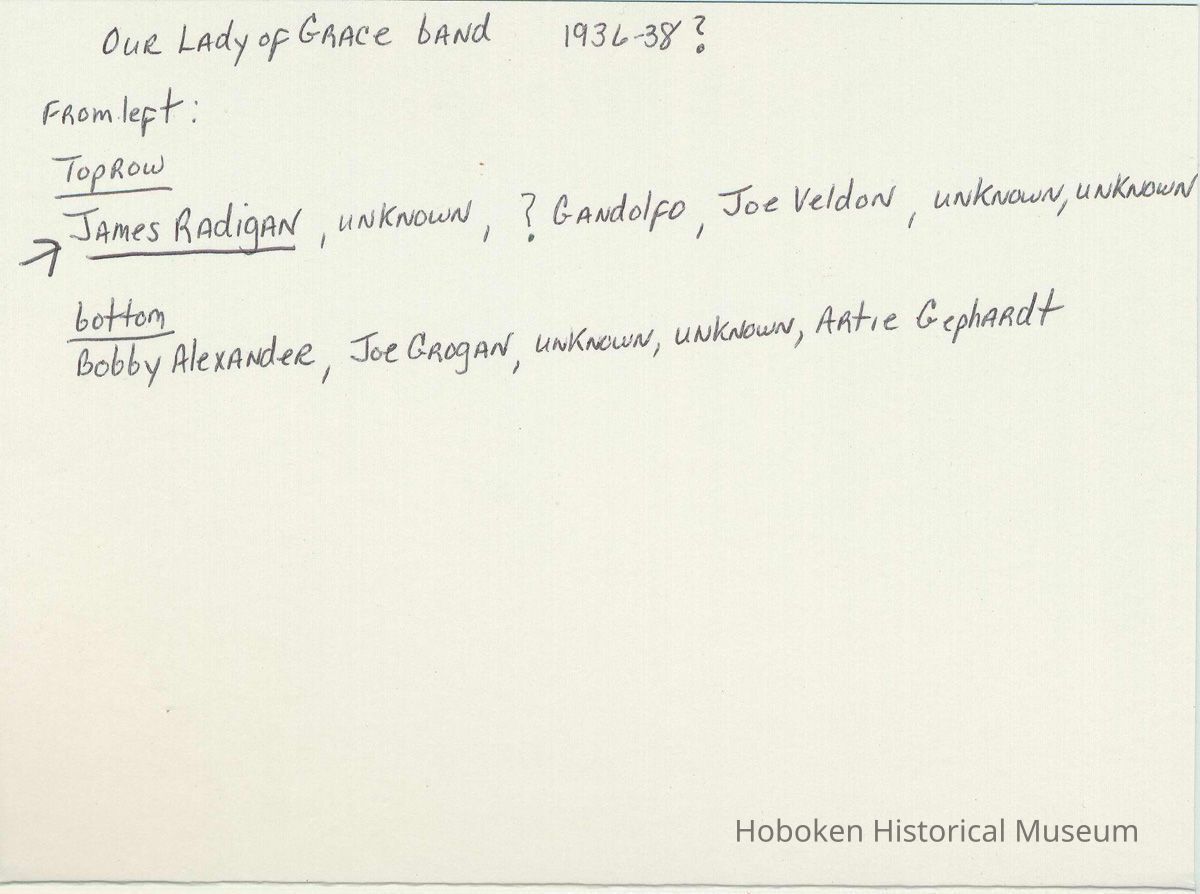 Our Lady of Grace band 1936-38?
From left:
Top Row
James Radigan, unknown, ? Gandolfo, Joe Veldon, unknown, unknown
bottom
Bobby Alexander, Joe Grogan, unknown, unknown, Artie Gephardt
Hoboken Historical Museum